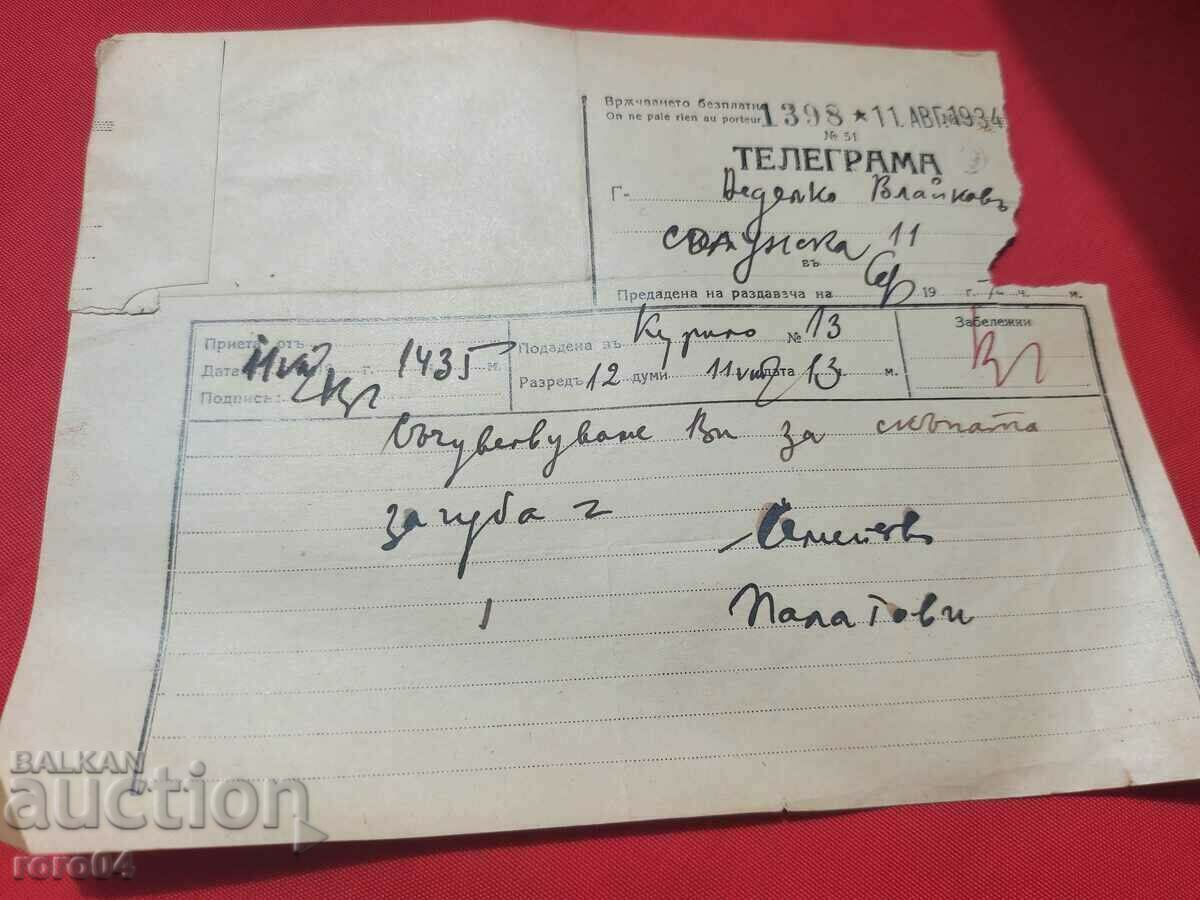 Врѫчването безплатн
On ne paie rien au porteur
1398 * 11. АВГ. 1934
№ 51
ТЕЛЕГРАМА
Г- Неделко Влайковъ
Солунска 11
въ
Предадена на раздавача на 19 г. ч. м.
Приета отъ
Дата 11 г. 1435 м.
Подпись:
Подадена въ Курило № 13
Разредъ 12 думи 11 дата 13 м.
Забележки
Съчувствуваме Ви за скъпата
загуба
Семейство
Палатови
BALKAN
auction
roro04